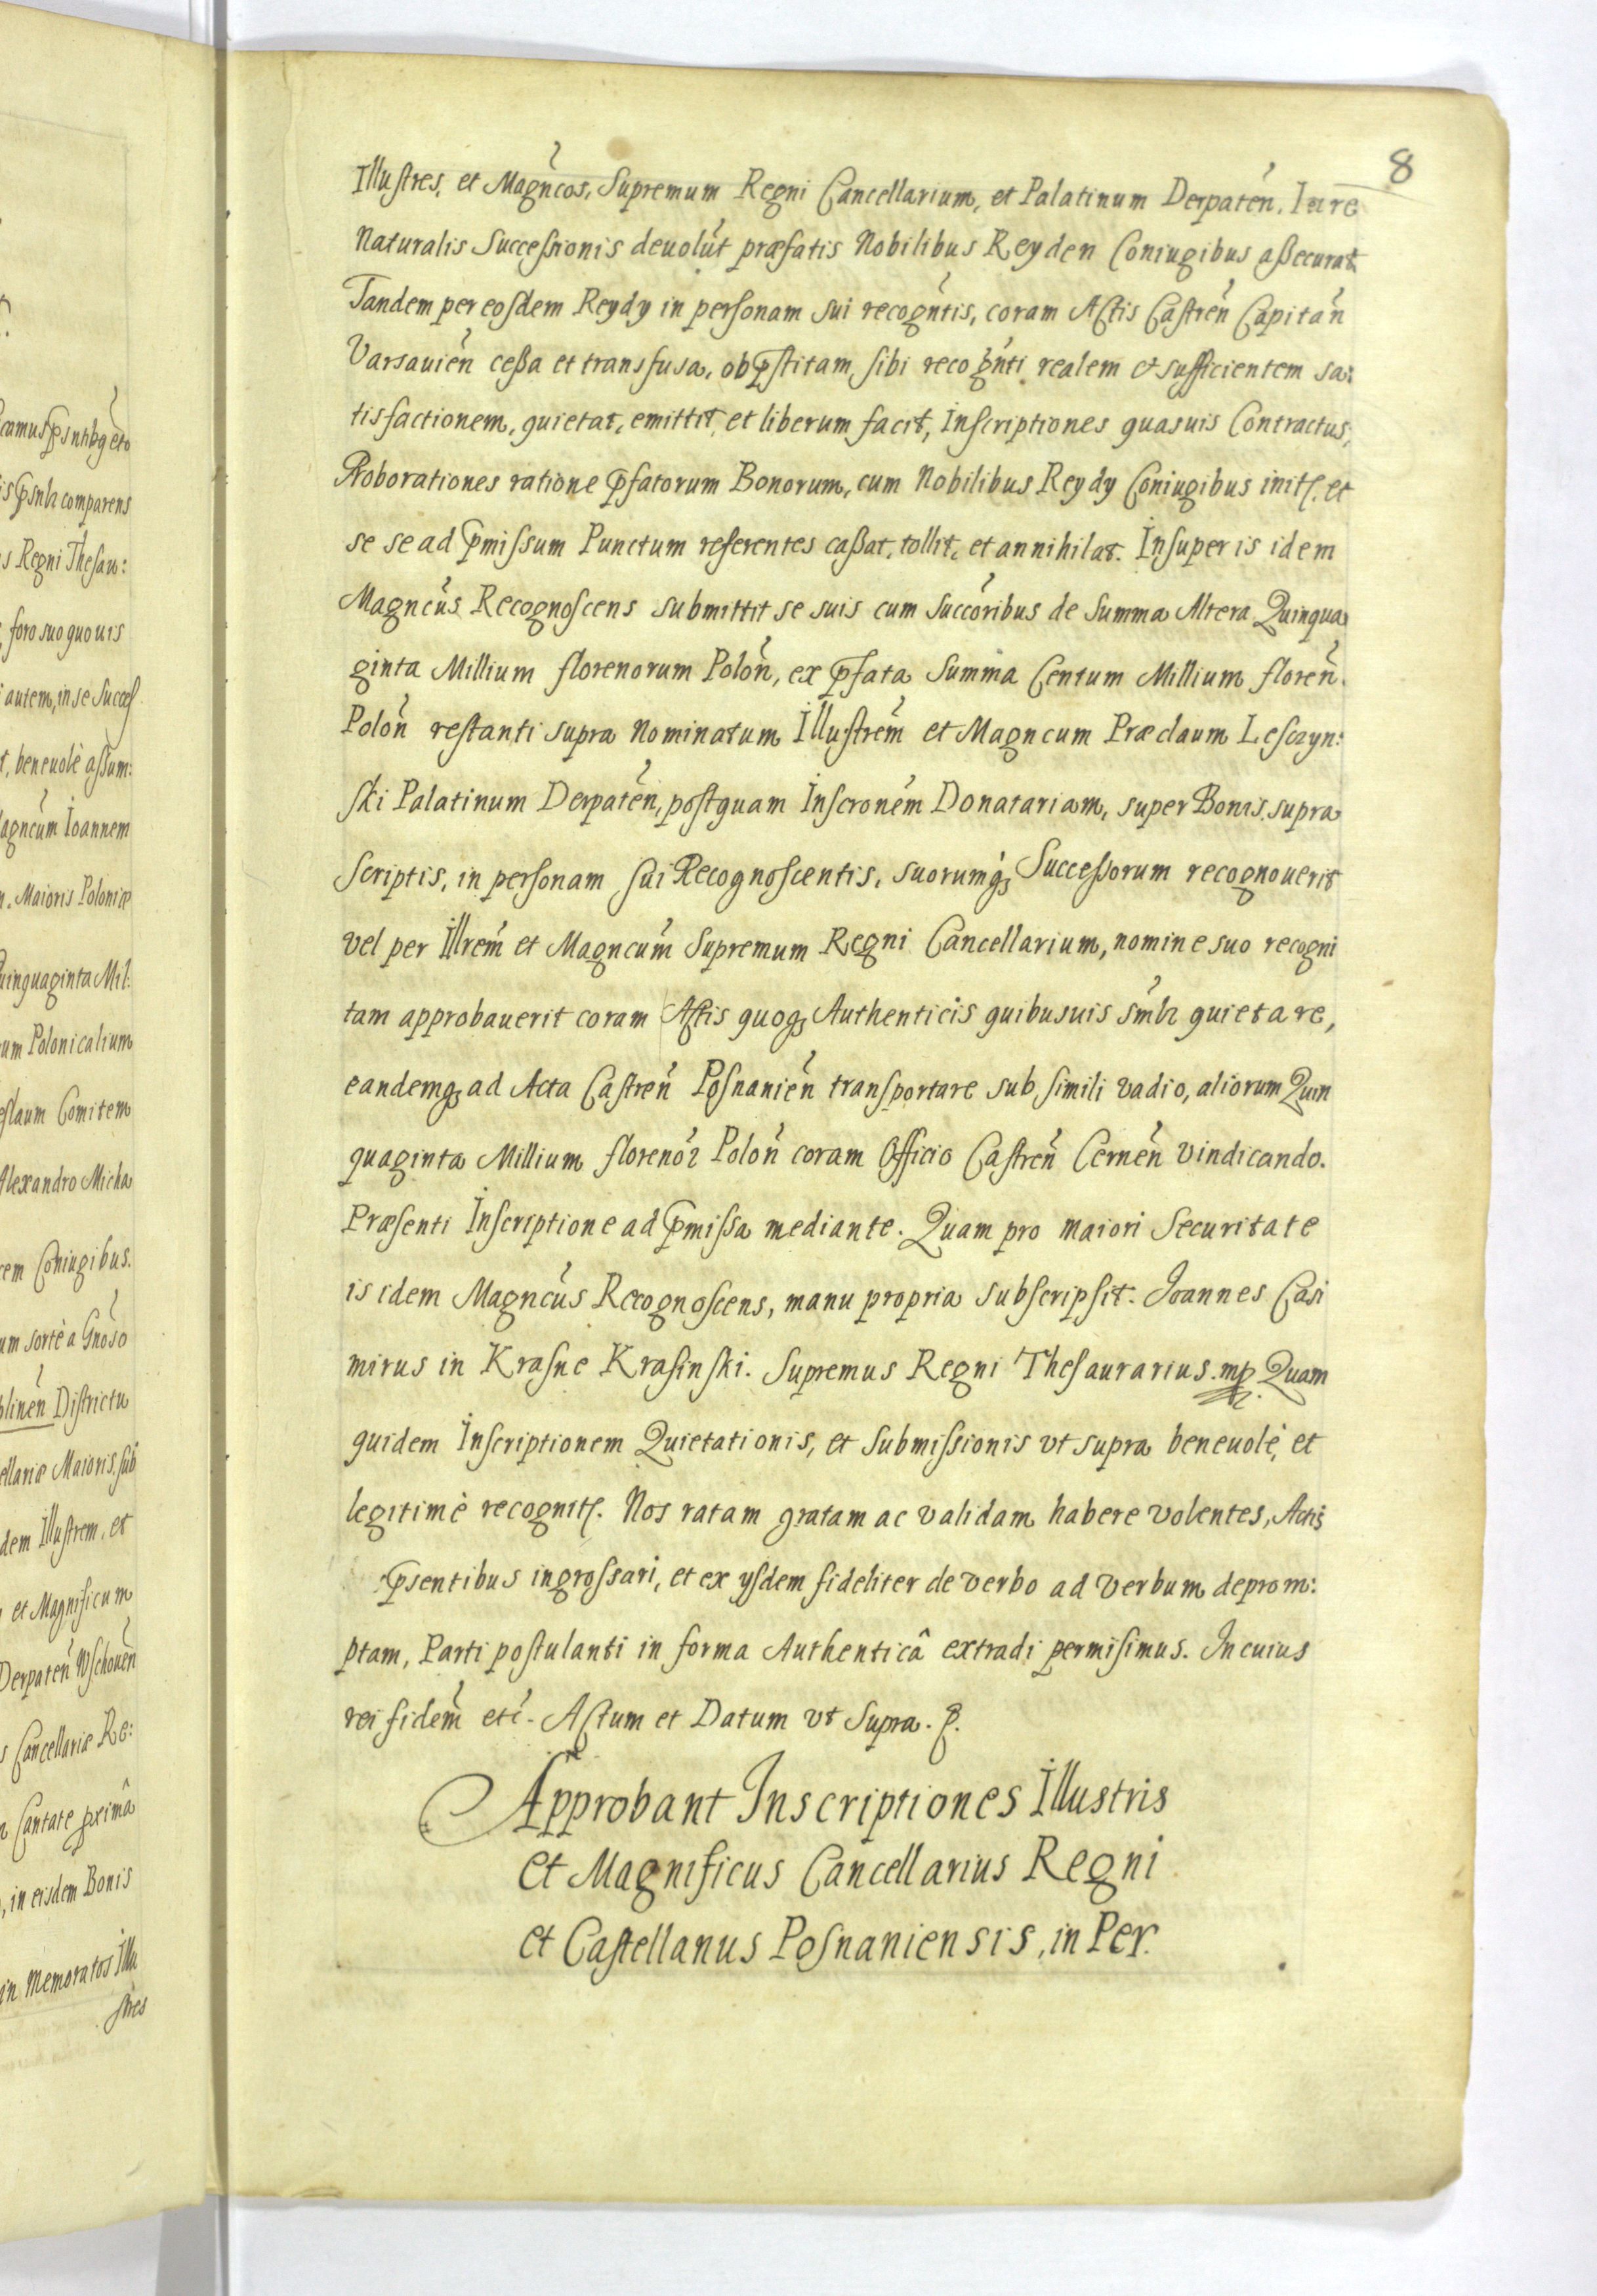 8
Illustres, et Magncos, Supremum Regni Cancellarium, et Palatinum Derpaten, Iure
Naturalis Successionis deuolut præfatis Nobilibus Reyden Coniugibus assecurat
Tandem per eosdem Reydy in personam sui recogntis, coram Actis Castren Capitan
Varsauien cessa et transfusa, ob pstitam sibi recognti realem et sufficientem sa:
tisfactionem, quietat, emittit, et liberum facit, Inscriptiones quasuis Contractus,
Roborationes ratione pfatorum Bonorum, cum Nobilibus Reydy Coniugibus initę, et
se se ad pmissum Punctum referentes cassat, tollit, et annihilat. Insuper is idem
Magncus Recognoscens submittit se suis cum Succoribus de Summa Altera Quinqua
ginta Millium florenorum Polon, ex pfata Summa Centum Millium floren.
Polon restanti supra Nominatum Illustrem et Magncum Præclaum Lesczyn:
ski Palatinum Derpaten, postquam Inscronem Donatariam, super Bonis supra
scriptis, in personam sui Recognoscentis, suorumq3 Successorum recognouerit
vel per Illrem et Magncum Supremum Regni Cancellarium, nomine suo recogni
tam approbauerit coram Actis quoq3 Authenticis quibusuis smlr quietare,
eandemq3 ad Acta Castren Posnanien transportare sub simili vadio, aliorum Quin
quaginta Millium florenor Polon coram Officio Castren Cernen vindicando.
Præsenti Inscriptione ad pmissa mediante. Quam pro maiori Securitate
is idem Magncus Recognoscens, manu propria subscripsit. Joannes Casi
mirus in Krasne Krasinski. Supremus Regni Thesaurarius. mp Quam
quidem Inscriptionem Quietationis, et Submissionis vt supra beneuolè, et
legitimè recognitę. Nos ratam gratam ac validam habere volentes, Actis
psentibus ingrossari, et ex ysdem fideliter de verbo ad verbum deprom:
ptam, Parti postulanti in forma Authenticâ extradi permisimus. In cuius
rei fidem etc. Actum et Datum vt Supra.
Approbant Inscriptiones Illustris
et Magnificus Cancellarius Regni
et Castellanus Posnaniensis, in Per.